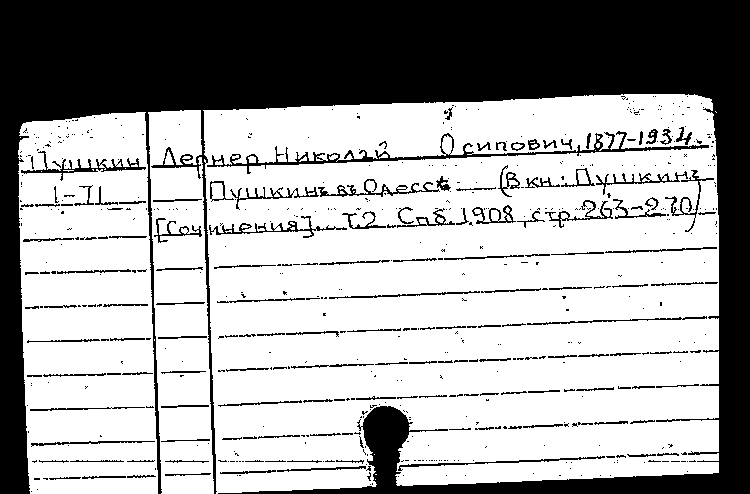 Пушкин Лернер, Николай Осипович, 1877-1934.
1-71 Пушкинъ въ Одессѣ. (В кн.: Пушкинъ
[Сочинения]. Т.2 Спб. 1908, стр. 263-270)